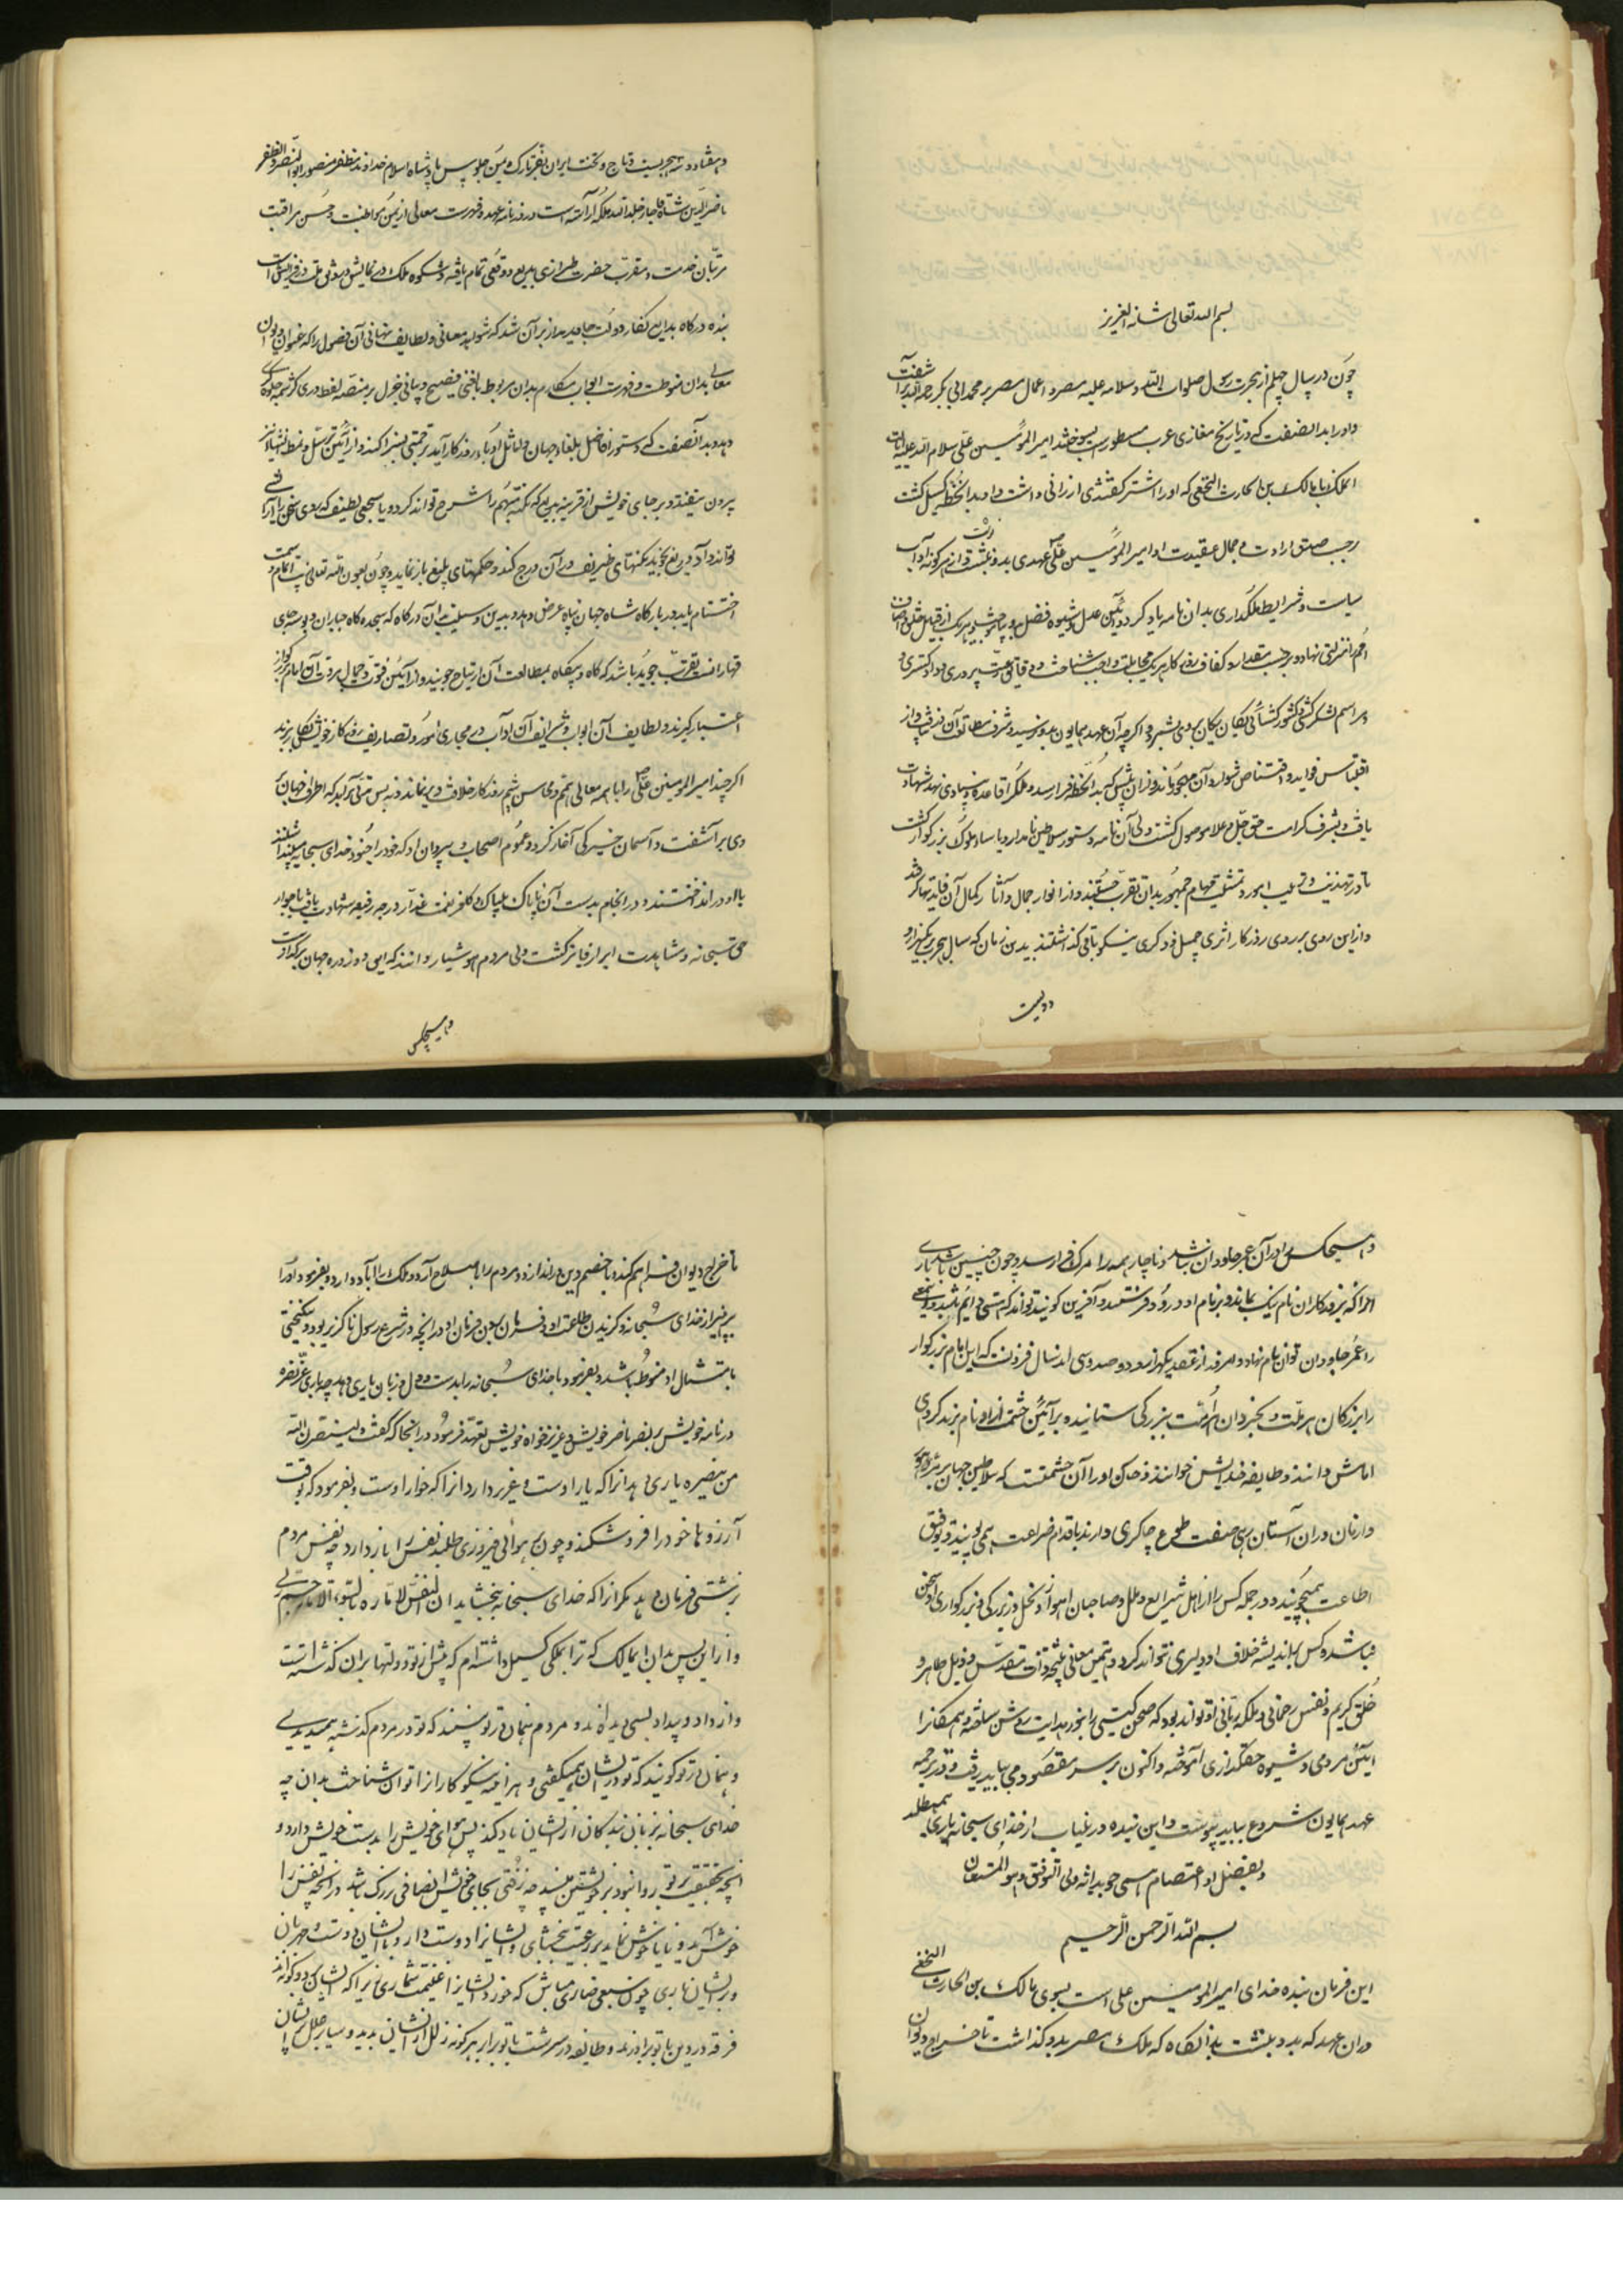 بسم الله تعالی شانه العزیز
چون در سال چهلم از هجرت رسول صلوات الله و سلامه علیه مصر و اعمال مصر بر محمد ابی بکر رحمه الله برآشفت
و او را بدان صفت که در تاریخ مغازی عرب مسطور است بسوختند امیر المؤمنین علی سلام الله علیه ایالت
آن ملک با مالک بن الحارث النخعی که او را اشتر گفتندی ارزانی داشت و او بدان خطه گسیل گشت
بر حسب صدق ارادت و جمال عقیدت او امیر المؤمنین علی عهدی بدو نبشت و از هر گونه آداب
سیاست و شرایط ملکداری بدان نامه یاد کرد و آیین عمل و شیوه فضل و هر یک از قبایل خلق و اصناف
امم را منزلتی نهاد و بر حسب مقدار و کفاف روی کار هر یک مخاطبت واجب شناخت و دقایق رعیت پروری و داد گستری و
مراسم لشکر کشی و کشور گشائی یکان یکان بر وی بشمرد و اگر چه آن عهد همایون بدو نرسید و شرف مطالعت آن نیافت و از
اقتباس فواید و اقتناص شوارد آن مهجور ماند و از آن پیش که بدان خطه فرا رسد و ملک را قاعده و بنیادی نهد شهادت
یافت و بشرف کرامت حق جل و علا موصول گشت ولی آن نامه دستور سلاطین نامدار و یاسا و ملوک بزرگوار گشت
تا در تهذیب و ترتیب امور و تمشیت مهام جمهور بدان تقرب جستند و از انوار جمال و آثار کمال آن فایدتها گرفتند
و از این روی بر روی روزگار اثری جمیل و ذکری نیکو باقی گذاشتند بدین زمان که سال هجری بر یکهزار و
دویست
و هفتاد و سه هجریست و تاج و تخت ایران بفر تارک و یمن جلوس پادشاه اسلام خداوند مظفر منصور ابو النصر و الظفر
ناصر الدین شاه قاجار خلد الله ملکه آراسته است و روزنامه عهد و فهرست معالی از یمن مواظبت و حسن مراقبت
مرتبان خدمت و مقربان حضرت طرازی بدیع و وقعی تمام یافته و شکوه ملک در نمایش و
بنده درگاه بدایع نگار دولت جاوید مدار بر آن شد که شواهد معانی و لطایف نهانی آن فصول را که عنوان دیوان
معالی بدان منوط است و فهرست ابواب مکارم بدان مربوط بلفظی فصیح و بیانی جزل بر منصه لفظ دری کرشمه جلوه
دهد و بدان صفت که دستور افاضل بلغاء جهان و اماثل ادباء روزگار آید ترجمتی بسزا کند و از آئین ترسل و نمط
بیرون نیفتد و بر جای خویش از قرینه بدیع که نکته مبهم را شرح تواند کرد و یا سجعی لطیف که روی سخن را آرایشی
تواند داد دریغ نجوید نکتهای ظریف در آن درج کند و حکمتهای بلیغ باز نماید و چون بعون الله تعالی سمت اتمام و
اختتام یابد در بارگاه شاه جهان پناه عرض دهد و بدین وسیلت بدان درگاه که سجده گاه جباران و بوسه جای
قهارانست تقرب جوید باشد که گاه و بیگاه بمطالعت آن ارتیاح جویند و از آئین فتوت و جمال مروت آن امام بزرگوار
اعتبار گیرند و لطایف آن ابواب و شرایف آن آداب در مجاری امور و تصاریف روزگار خویش بکار برند
اگر چند امیر المومنین علی را با همه معالی همم و محاسن شیم روزگار خلافت دیر نماند و نه بس مدتی برآمد که اطراف جهان بر
وی برآشفت و آسمان خیرگی آغاز کرد و عموم اصحاب و پیروان او که خود را جنود خدای سبحانه میشمردند
با او در انداختند و در انجام بدست آن ناپاک بیباک و کافر نعمت غدار درجه رفیعه شهادت یافت و بجوار
حق سبحانه و مشاهدت ابرار فایز گشت ولی مردم هوشیار دانند که این دو روزه جهان بر گذار است
و هیچکس
و هیچکس را در آن عمر جاودان نباشد و ناچار همه را مرگ فرا رسد و چون چنین باشد باری
آنرا که بروزگاران نام نیک بماند و بر نام او درود فرستند و آفرین گویند تواند که هستی دایم شمرد و
را عمر جاودان توان نام نهاد و امروز از قصد یکهزار و دویست و سی اند سال فزونست که این امام بزرگوار
را بزرگان هر ملت و بخردان هر امت ببزرگی ستاینده بر آئین حشمت از او نام برند گروهی
امامش دانند و طایفه خدایش خوانند و خاک او را آن حشمتست که سلاطین جهان
و از نان در آن آستان رسم صفت طوع چاکری دارند باقدام ضراعت همی پویند و توفیق
اطاعت همیجویند و در جمله کس را از اهل شرایع و ملل و صاحبان اهواء و نحل در بزرگی و بزرگواری او سخن
نباشد و کس را اندیشه خلاف او دلیری نتواند کرد و همین معانی نتیجه ذات مقدس و ذیل طاهر و
خلق کریم و نفس رحمانی و ملکه ربانی او تواند بود که صحن گیتی را بنور هدایت روشن ساخته و همگانرا
آئین مردمی و شیوه حقگذاری آموخته و اکنون بر سر مقصود می باید رفت و در ترجمه
عهد همایون شروع بباید پیوست و این بنده در غیاب از خدای سبحانه یاری همیطلبد
و بفضل او اعتصام همی جوید انه ولی التوفیق و هو المستعان
بسم الله الرحمن الرحیم
این فرمان بنده خدای امیر المومنین علی است بسوی مالک بن الحارث النخعی
در آن عهد که بدو نبشت بدانگاه که ملک مصر بدو گذاشت تا خراج دیوان
تا خراج دیوان فراهم کند و با خصم دین در اندازد و مردم را باصلاح آرد و ملک را آباد دارد و بفرمود او را
بپرهیز از خدای سبحانه و گزیدن طاعت او و فرمان بردن فرمان او در آنچه در شرع رسول ناگزیر بود و نیکبختی
بامتثال او منوط باشد و بفرمود تا خدای سبحانه را بدست و دل و زبان یاری دهد چه باری عز نصره
در نامه خویش بر نصر ناصر خویش و عزیز خواه خویش تعهد فرمود در آنجا که گفت و لینصرن الله
من ینصره یاری دهد آنرا که یار اوست و عزیز دارد آنرا که خوار اوست و بفرمود که بوقت
آرزوها خود را فرو شکند و چون بهوائی فیروزی طلبد نفس را باز دارد چه نفس مردم
بزشتی فرمان دهد مگر آنرا که خدای سبحانه ببخشاید ان النفس لامارة بالسوء الا ما رحم ربی
و از این پس بدان ای مالک که ترا بملکی گسیل داشته ام که پیش از تو دولتها بر آن گذشته است
و از داد و بیداد بسی دیده اند و مردم همان در تو بینند که تو در مردم گذشته همیدیدی
و همان در تو گویند که تو در ایشان همیگفتی و هر آینه نیکو کار را از آن توان شناخت بدان چه
خدای سبحانه بر زبان بندگان از ایشان یاد کند پس هوای خویش را بدست خویش دار و
آنچه بحقیقت بر تو روا نبود بر خویشتن مپسند چه زفتی بجای خویش انصافی بزرگ باشد در آنچه نفس را
خوش آید و یا ناخوش نماید بر رعیت ببخشای و ایشانرا دوست دار و با ایشان دوست و مهربان
و بر ایشان باری چون سبعی ضاری مباش که خورد ایشانرا غنیمت شماری زیرا که ایشان بر دو گونه اند
فرقه در دین با تو برادرند و طایفه در سرشت با تو برابر هر گونه زلل از ایشان پدید و بسیار خلل بر ایشان